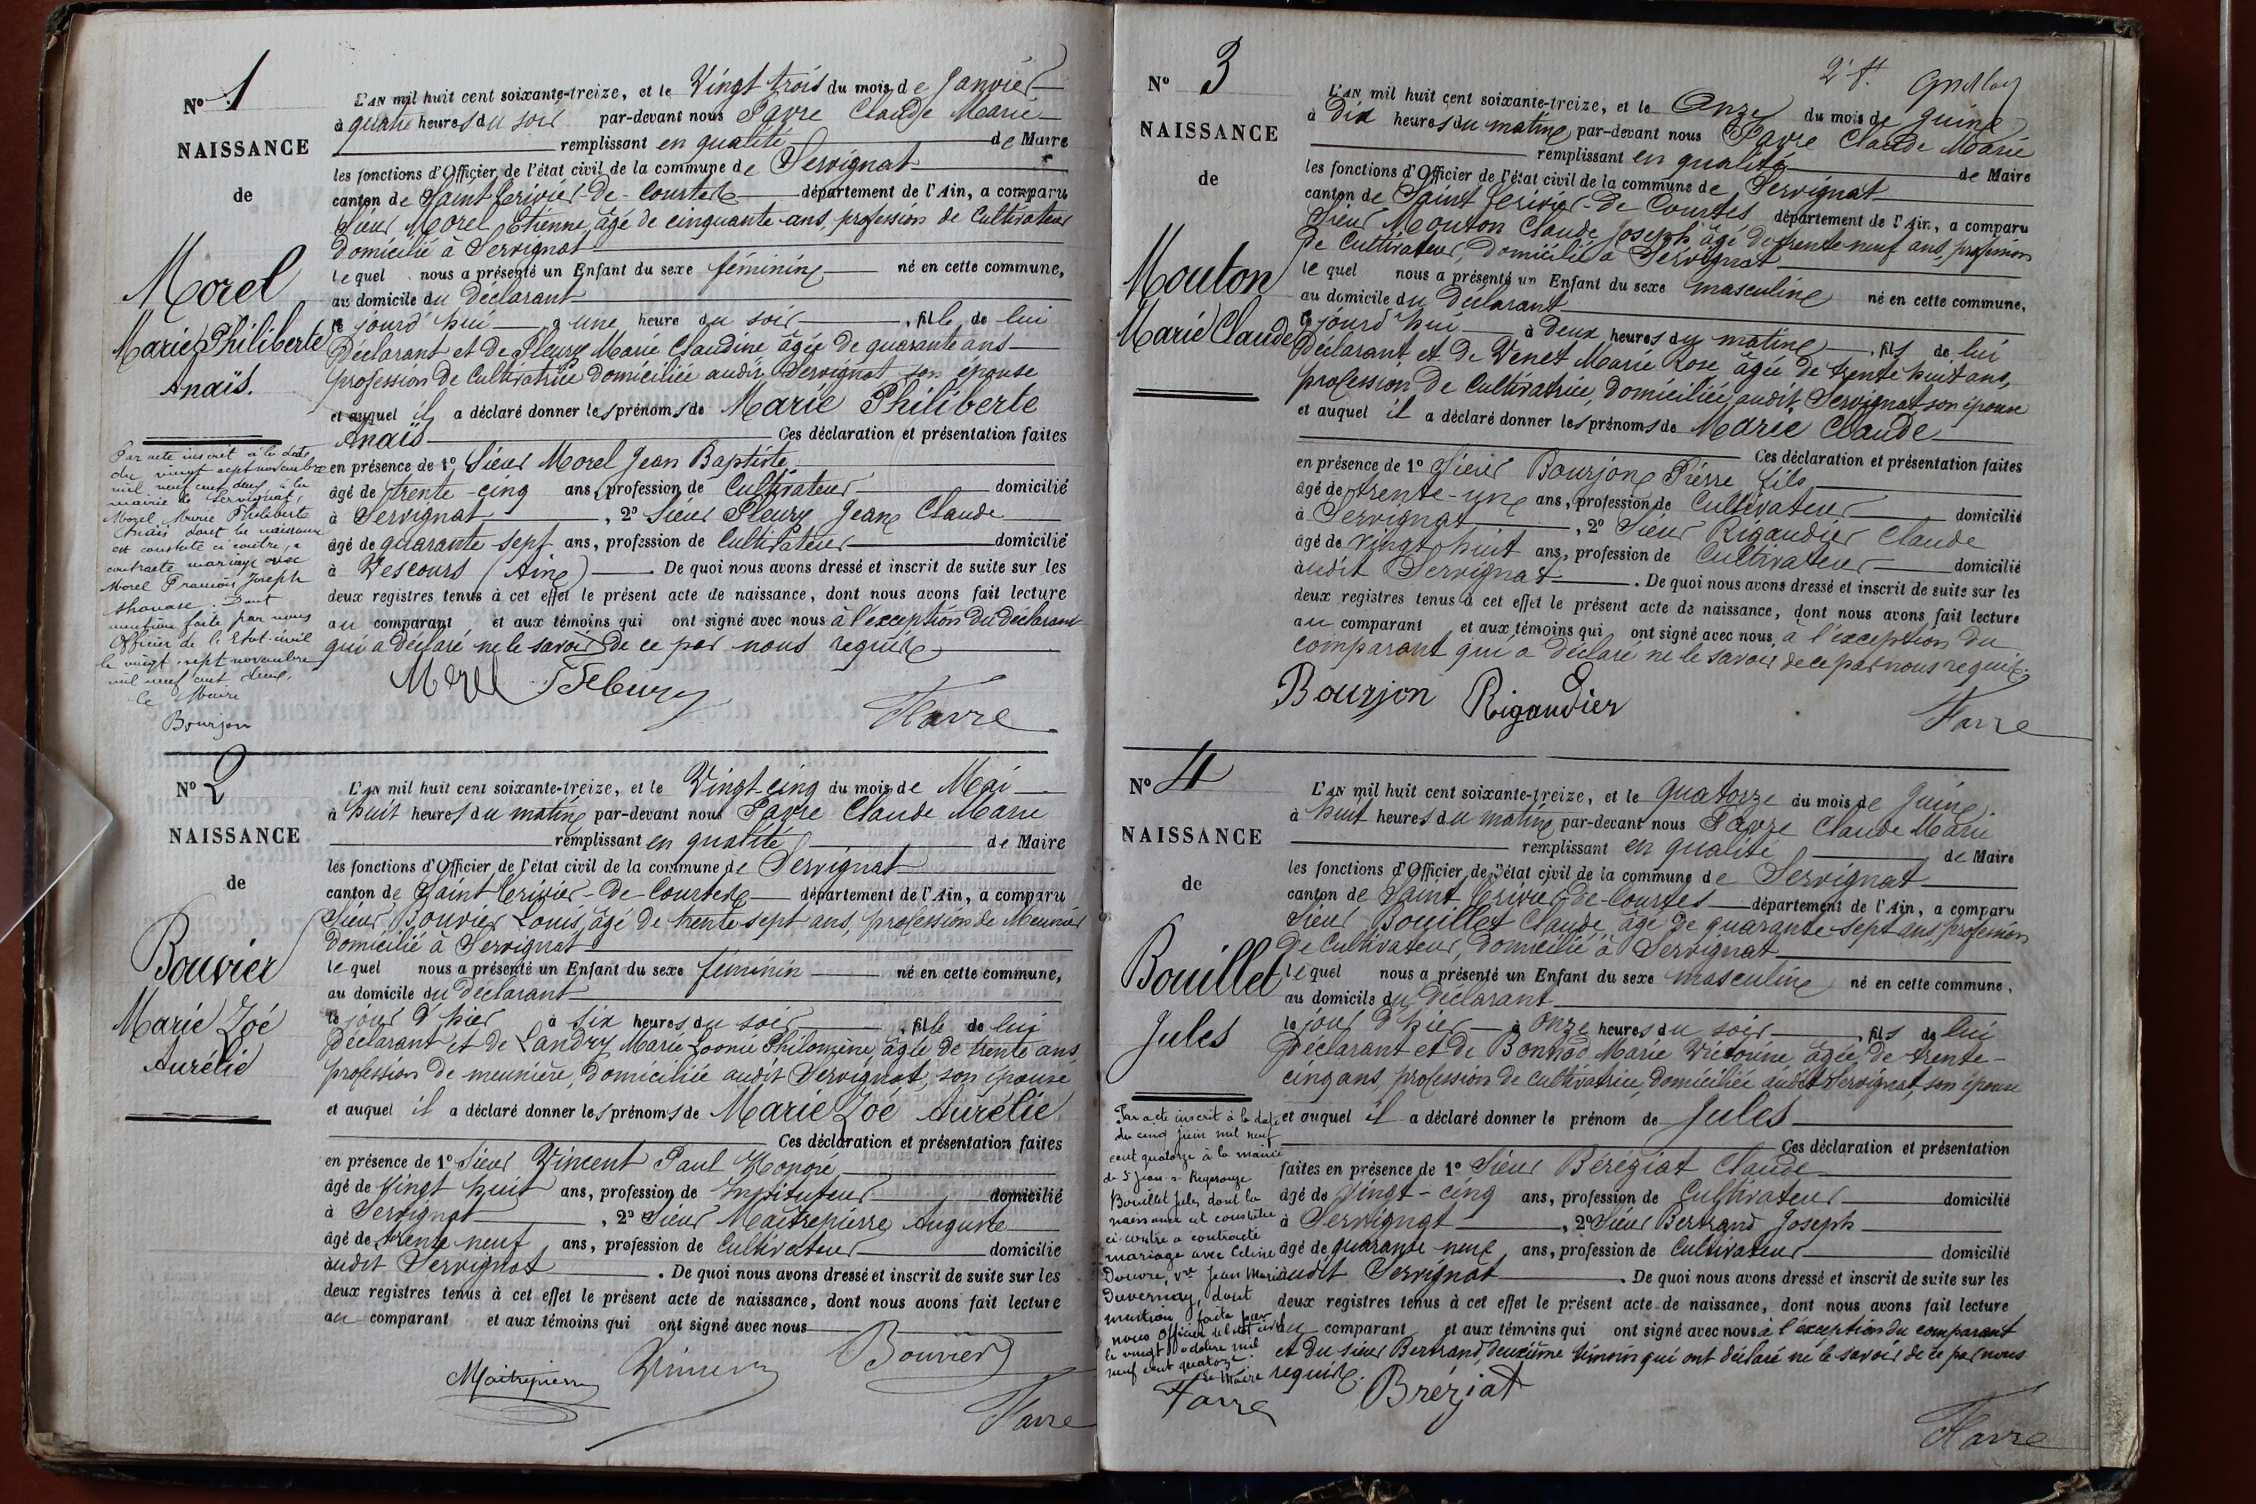 Nº 1
NAISSANCE
de
Morel
Marie Philiberte
Anaïs.
L'AN mil huit cent soixante-treize, et le Vingt trois du mois de Janvier
à quatre heures du soir par-devant nous Favre Claude Marie
remplissant en qualité de Maire
les fonctions d'Officier de l'état civil de la commune de Servignat
canton de Saint Trivier-de-Courtes département de l'Ain, a comparu
Sieur Morel Etienne, âgé de cinquante ans, profession de Cultivateur
domicilié à Servignat
lequel nous a présenté un Enfant du sexe féminin né en cette commune,
au domicile du Déclarant
le jourd'hui à une heure du soir, fille de lui
Déclarant et de Fleury Marie Claudine âgée de quarante ans
profession de Cultivatrice domiciliée audit Servignat son épouse
et auquel il a déclaré donner les prénoms de Marie Philiberte
Anaïs Ces déclaration et présentation faites
en présence de 1º Sieur Morel Jean Baptiste
âgé de trente-cinq ans, profession de Cultivateur domicilié
à Servignat, 2º Sieur Fleury Jean Claude
âgé de quarante sept ans, profession de Cultivateur domicilié
à Vescours (Ain) De quoi nous avons dressé et inscrit de suite sur les
deux registres tenus à cet effet le présent acte de naissance, dont nous avons fait lecture
au comparant et aux témoins qui ont signé avec nous à l'exception du déclarant
qui a déclaré ne le savoir de ce par nous requis
Morel Fleury
Favre
Par acte inscrit à la date
du vingt sept novembre
mil neuf cent deux à la
mairie de Servignat,
Morel Marie Philiberte
Anaïs dont la naissance
est constatée ci contre, a
contracté mariage avec
Morel François Joseph
Dont
mention faite par nous
Officier de l'Etat-civil
le vingt sept novembre
mil neuf cent deux,
Le Maire
Bourjon
Nº 2
NAISSANCE
de
Bouvier
Marie Zoé
Aurélie
L'AN mil huit cent soixante-treize, et le Vingt-cinq du mois de Mai
à huit heures du matin par-devant nous Favre Claude Marie
remplissant en qualité de Maire
les fonctions d'Officier de l'état civil de la commune de Servignat
canton de Saint Trivier-de-Courtes département de l'Ain, a comparu
Sieur Bouvier Louis, âgé de trente sept ans, profession de Meunier
domicilié à Servignat
lequel nous a présenté un Enfant du sexe féminin né en cette commune,
au domicile du déclarant
le jour d'hier à six heures du soir, fille de lui
déclarant et de Landry Marie Philomène, âgée de trente ans
profession de meunière, domiciliée audit Servignat, son épouse
et auquel il a déclaré donner les prénoms de Marie Zoé Aurélie
Ces déclaration et présentation faites
en présence de 1º Sieur Vincent Paul Honoré
âgé de Vingt huit ans, profession de Instituteur domicilié
à Servignat, 2º Sieur Maîtrepierre Auguste
âgé de trente neuf ans, profession de Cultivateur domicilié
audit Servignat. De quoi nous avons dressé et inscrit de suite sur les
deux registres tenus à cet effet le présent acte de naissance, dont nous avons fait lecture
au comparant et aux témoins qui ont signé avec nous
Maitrepierre Vincent Bouvier
Favre
2e f.
Nº 3
NAISSANCE
de
Mouton
Marie Claude
L'AN mil huit cent soixante-treize, et le Onze du mois de Juin
à Dix heures du matin par-devant nous Favre Claude Marie
remplissant en qualité de Maire
les fonctions d'Officier de l'état civil de la commune de Servignat
canton de Saint Trivier-de-Courtes département de l'Ain, a comparu
Sieur Mouton Claude Joseph âgé de trente neuf ans, profession
de Cultivateur, domicilié à Servignat
lequel nous a présenté un Enfant du sexe masculin né en cette commune,
au domicile du Déclarant
le jourd'hui à deux heures du matin, fils de lui
Déclarant et de Venet Marie Rose âgée de trente huit ans,
profession de Cultivatrice, domiciliée audit Servignat son épouse
et auquel il a déclaré donner les prénoms de Marie Claude
Ces déclaration et présentation faites
en présence de 1º Sieur Bourjon Pierre fils
âgé de trente-un ans, profession de Cultivateur domicilié
à Servignat, 2º Sieur Rigaudier Claude
âgé de vingt huit ans, profession de Cultivateur domicilié
audit Servignat. De quoi nous avons dressé et inscrit de suite sur les
deux registres tenus à cet effet le présent acte de naissance, dont nous avons fait lecture
au comparant et aux témoins qui ont signé avec nous à l'exception du
comparant qui a déclaré ne le savoir de ce par nous requis.
Bourjon Rigaudier
Favre
Nº 4
NAISSANCE
de
Bouillet
Jules
L'AN mil huit cent soixante-treize, et le quatorze du mois de Juin
à huit heures du matin par-devant nous Favre Claude Marie
remplissant en qualité de Maire
les fonctions d'Officier de l'état civil de la commune de Servignat
canton de Saint Trivier-de-Courtes département de l'Ain, a comparu
Sieur Bouillet Claude, âgé de quarante sept ans, profession
de Cultivateur, domicilié à Servignat
lequel nous a présenté un Enfant du sexe masculin né en cette commune,
au domicile du Déclarant
le jour d'hier à onze heures du soir, fils de lui
Déclarant et de Marie Victorine âgée de trente-
cinq ans, profession de cultivatrice, domiciliée audit Servignat, son épouse
et auquel il a déclaré donner le prénom de Jules
Ces déclaration et présentation
faites en présence de 1º Sieur Béréziat Claude
âgé de Vingt-cinq ans, profession de Cultivateur domicilié
à Servignat, 2º Sieur Bertrand Joseph
âgé de quarante neuf ans, profession de Cultivateur domicilié
audit Servignat. De quoi nous avons dressé et inscrit de suite sur les
deux registres tenus à cet effet le présent acte de naissance, dont nous avons fait lecture
au comparant et aux témoins qui ont signé avec nous à l'exception du comparant
et du sieur Bertrand, deuxième témoin qui ont déclaré ne le savoir de ce par nous
requis.
Bréziat
Favre
Par acte inscrit à la date
du cinq juin mil neuf
cent quatorze à la mairie
de St Jean s. Reyssouze
Bouillet Jules dont la
naissance est constatée
ci contre a contracté
mariage avec Celine
Douvre, Vve Jean Marie
Duvernay, dont
mention faite par
nous Officier de l'état civil
le vingt octobre mil
neuf cent quatorze.
Le Maire
Favre